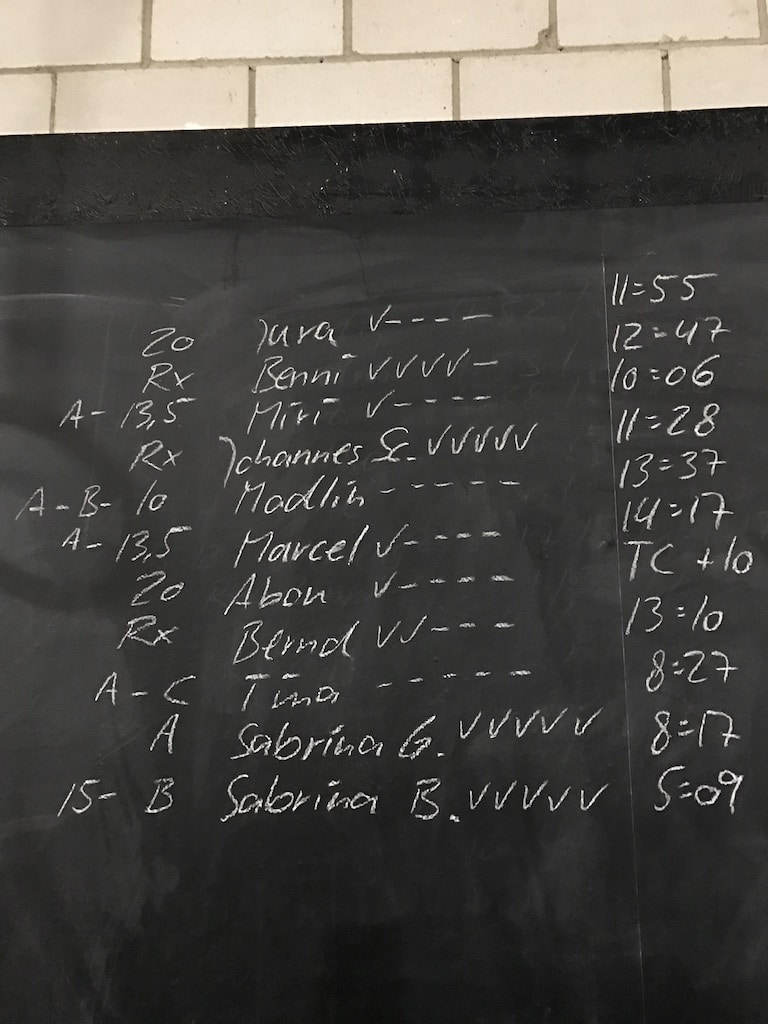 20 Jura V---- 11=55
Rx Benni VVVV- 12=47
A- 13,5 Miri V---- 10=06
Rx Johannes Sc. VVVVV 11=28
A-B- 10 Madlin ----- 13=37
A- 13,5 Marcel V---- 14=17
20 Abon V---- TC +10
Rx Bernd VV--- 13=10
A-C Tina ----- 8=27
A Sabrina G. VVVVV 8=17
15- B Sabrina B. VVVVV 5=09